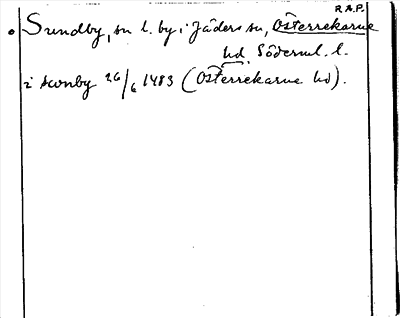 R.A.P.
Sundby, sn l. by i Jäders sn, Österrekarne
hd, Söderml. l.
i swnby 26/6 1483 (Österrekarne hd).